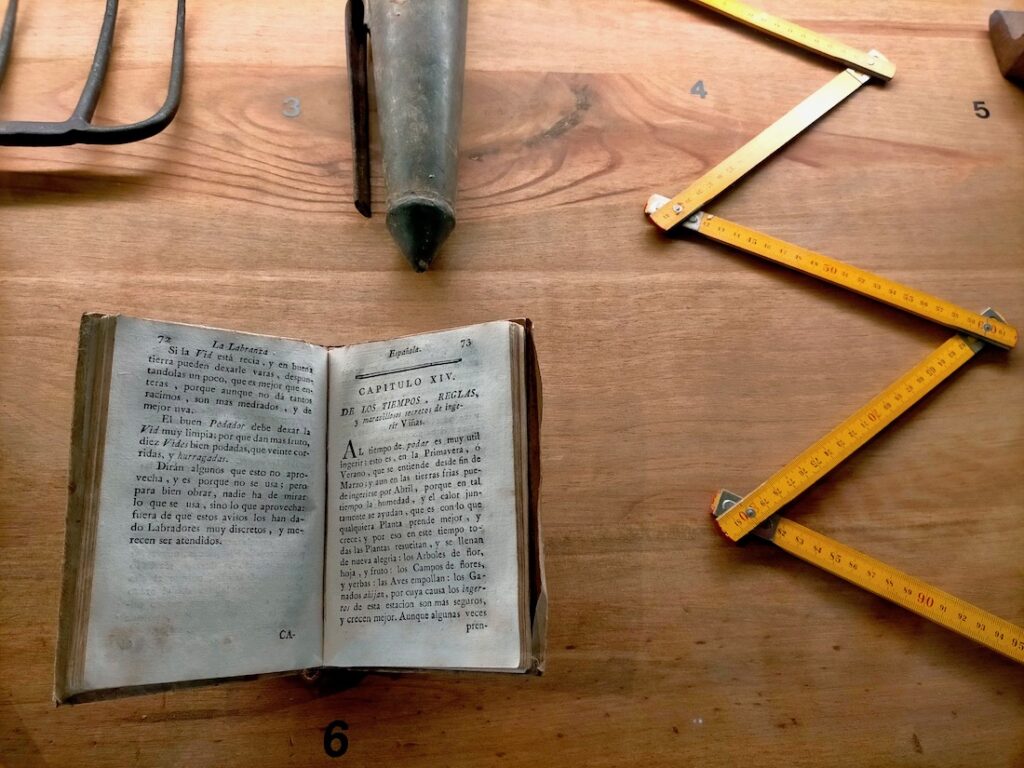 3
4
5
72 La Labranza.
Si la Vid está recia, y en buena
tierra pueden dexarle varas, despun-
tandolas un poco, que es mejor que en-
teras, porque aunque no dá tantos
racimos, son mas medrados, y de
mejor uva.
El buen Podador debe dexar la
Vid muy limpia; por que dan mas fruto,
diez Vides bien podadas, que veinte cor-
ridas, y hurragadas.
Dirán algunos que esto no apro-
vecha, y es porque no se usa; pero
para bien obrar, nadie ha de mirar
lo que se usa, sino lo que aprovecha:
fuera de que estos avisos los han da-
do Labradores muy discretos, y me-
recen ser atendidos.
CA-
Española. 73
CAPITULO XIV.
DE LOS TIEMPOS, REGLAS,
y maravillosos secretos de inge-
rir Viñas.
AL tiempo de podar es muy util
ingerir: esto es, en la Primavera, ó
Verano, que se entiende desde fin de
Marzo; y aun en las tierras frias pue-
de ingerirse por Abril, porque en tal
tiempo la humedad, y el calor jun-
tamente se ayudan, que es con lo que
qualquiera Planta prende mejor, y
crece: y por eso en este tiempo to-
das las Plantas resucitan, y se llenan
de nueva alegria: los Arboles de flor,
hoja, y fruto: los Campos de flores,
y yerbas: las Aves empollan: los Ga-
nados ahijan, por cuya causa los inger-
tos de esta estacion son mas seguros,
y crecen mejor. Aunque algunas veces
pren-
45 50 55 60
70
82 83 84 85 86 87 88 89 90 91 92 93 94 95
6